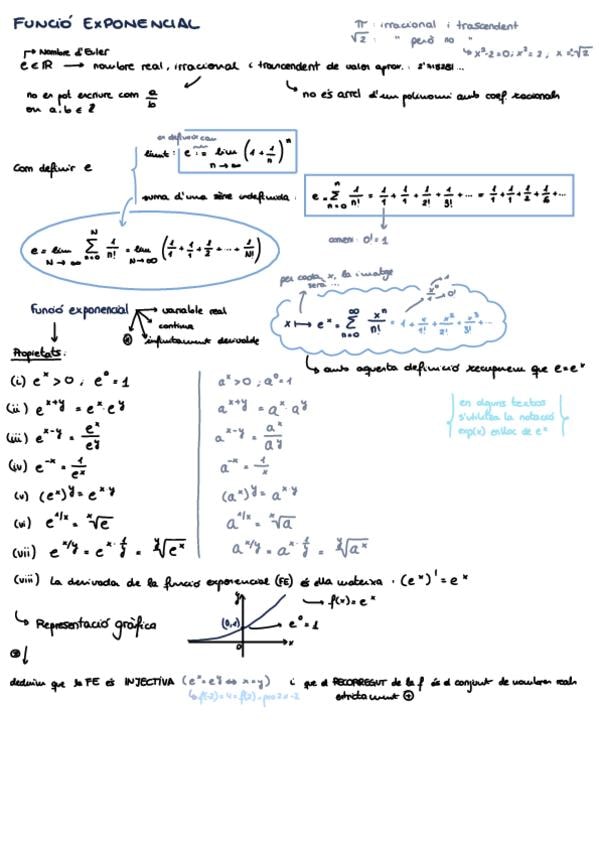 FUNCIÓ EXPONENCIAL
π : irracional i trascendent
√2 : " però no "
↳ x²-2=0; x²=2, x=±√2
↱ Nombre d'Euler
e ∈ ℝ → nombre real, irracional i trancendent de valor aprox. : 2'71828...
no es pot escriure com a/b
on a,b ∈ ℤ
↳ no és arrel d'un polinomi amb coef. racionals
Com definir e
es defineix com
límit : e := lim n→∞ (1+1/n)ⁿ
suma d'una sèrie indefinida :
e = Σ n=0 n 1/n! = 1/1 + 1/1 + 1/2! + 1/3! + ... = 1/1 + 1/1 + 1/2 + 1/6 + ...
conveni : 0! = 1
e = lim N→∞ Σ n=0 N 1/n! = lim N→∞ (1/1 + 1/1 + 1/2 + ... + 1/N!)
per cada x, la imatge
serà ...
Funció exponencial
variable real
contínua
infinitament derivable
x ↦ eˣ = Σ n=0 ∞ xⁿ/n! = 1 + x/1 + x²/2! + x³/3! + ...
x⁰→1
1→0!
↳ amb aquesta definició recuperem que e=eˣ
Propietats:
(i) eˣ > 0 ; e⁰ = 1
aˣ > 0 ; a⁰ = 1
(ii) eˣ⁺ʸ = eˣ · eʸ
aˣ⁺ʸ = aˣ · aʸ
(iii) eˣ⁻ʸ = eˣ/eʸ
aˣ⁻ʸ = aˣ/aʸ
(iv) e⁻ˣ = 1/eˣ
a⁻ˣ = 1/x
(v) (eˣ)ʸ = eˣ·ʸ
(aˣ)ʸ = aˣ·ʸ
(vi) e¹ᐟˣ = ˣ√e
a¹ᐟˣ = ˣ√a
(vii) eˣᐟʸ = eˣ·¹ᐟʸ = ʸ√eˣ
aˣᐟʸ = aˣ·¹ᐟʸ = ʸ√aˣ
en alguns textos
s'utilitza la notació
exp(x) enlloc de eˣ
(viii) La derivada de la funció exponencial (FE) és ella mateixa · (eˣ)' = eˣ
↳ Representació gràfica
y
(0,1)
0
x
→ f(x) = eˣ
→ e⁰ = 1
deduïm que la FE és INJECTIVA (eˣ = eʸ ⇔ x=y) i que el RECORREGUT de la f és el conjunt de nombres reals
estrictament ⊕
↳ f(-2) = 4 = f(2) però 2 ≠ -2